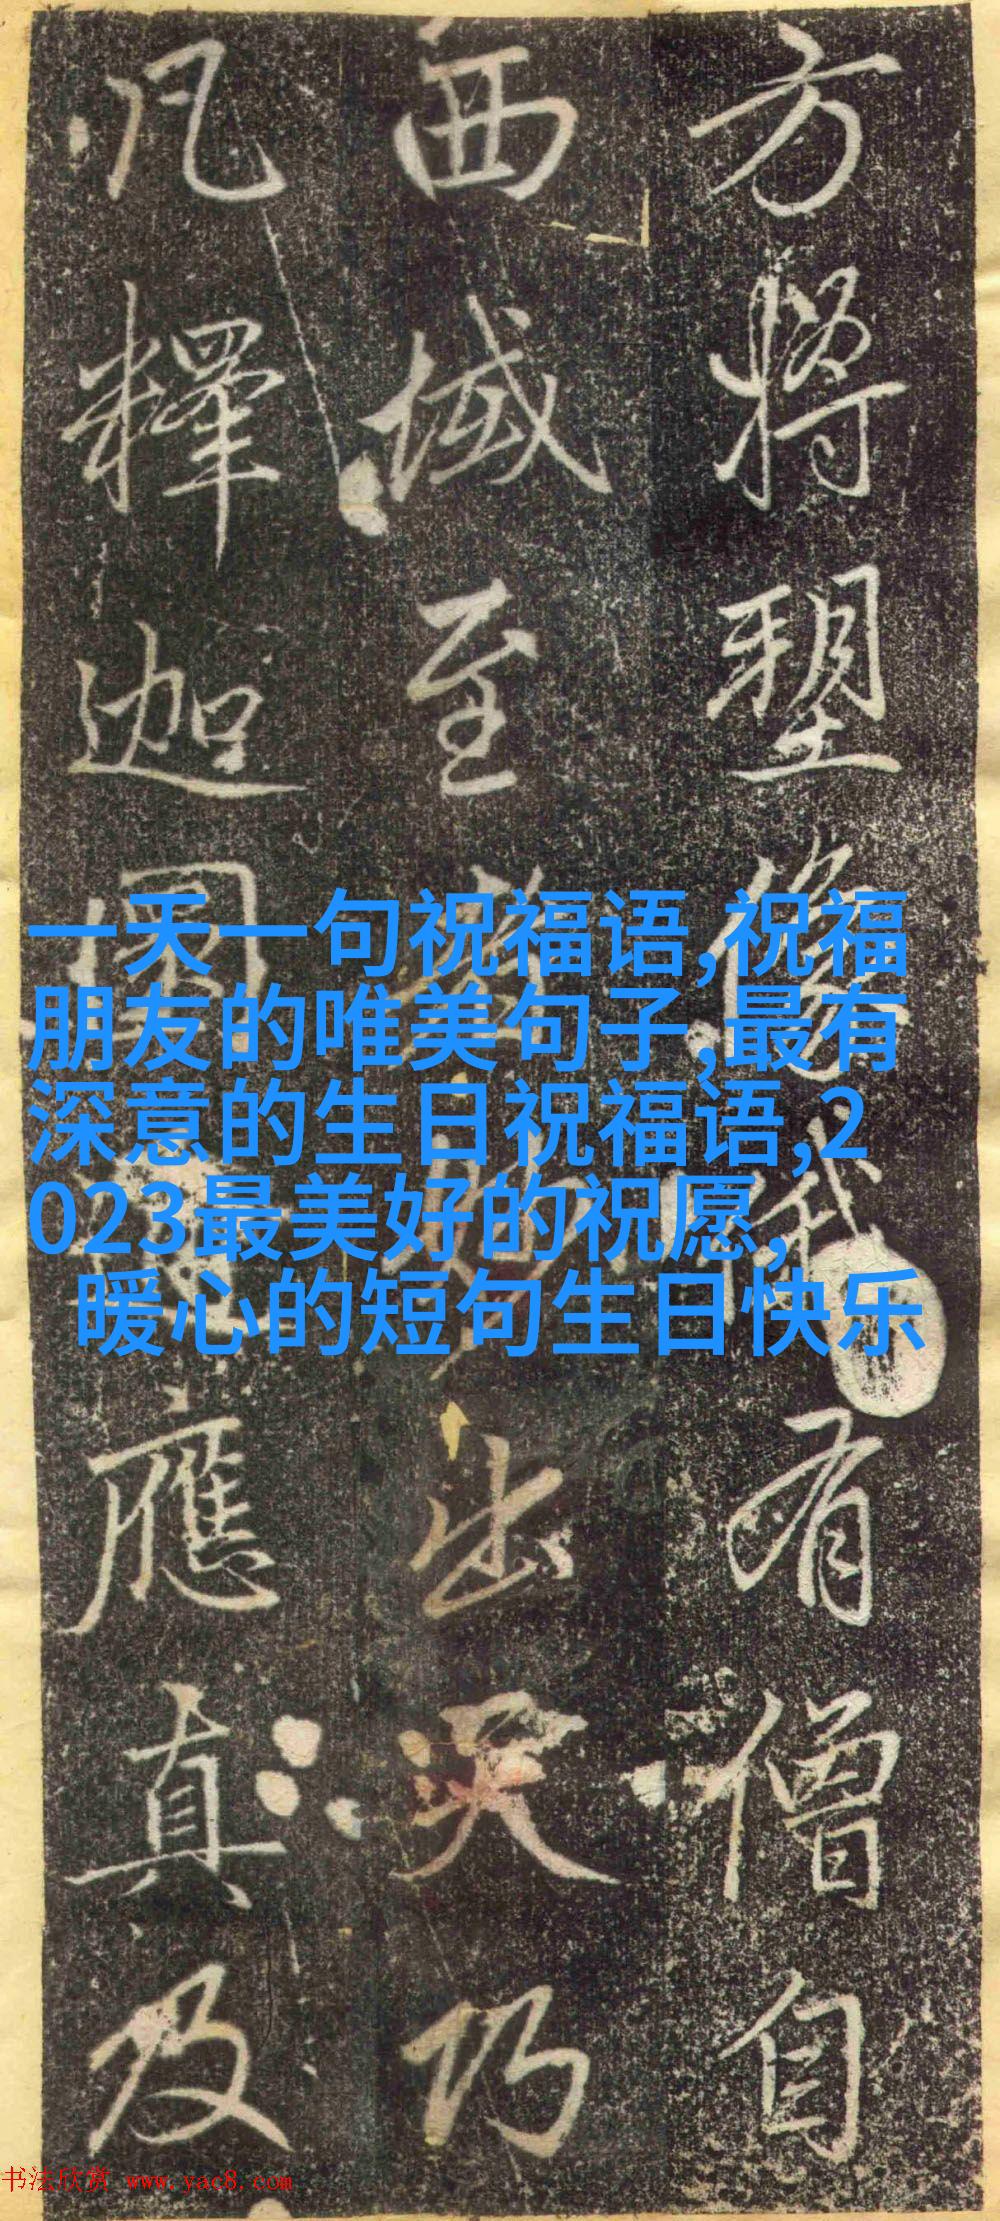 方將塑像有僧自
西域至出乃
凡釋迦應真及
一天一句祝福语,祝福
朋友的唯美句子,最有
深意的生日祝福语,2
023最美好的祝愿,
暖心的短句生日快乐
书法欣赏 www.yac8.com